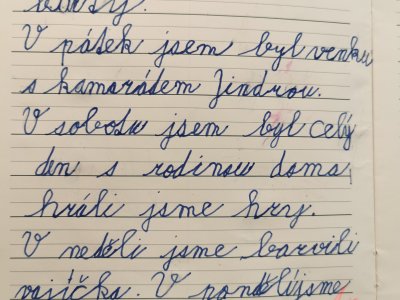 V pátek jsem byl venku
s kamarádem Jindrou.
V sobotu jsem byl celý
den s rodinou doma,
hráli jsme hry.
V neděli jsme barvili
vajíčka. V pondělí jsme